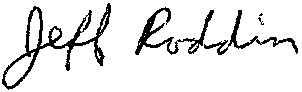 Jeff Roddin